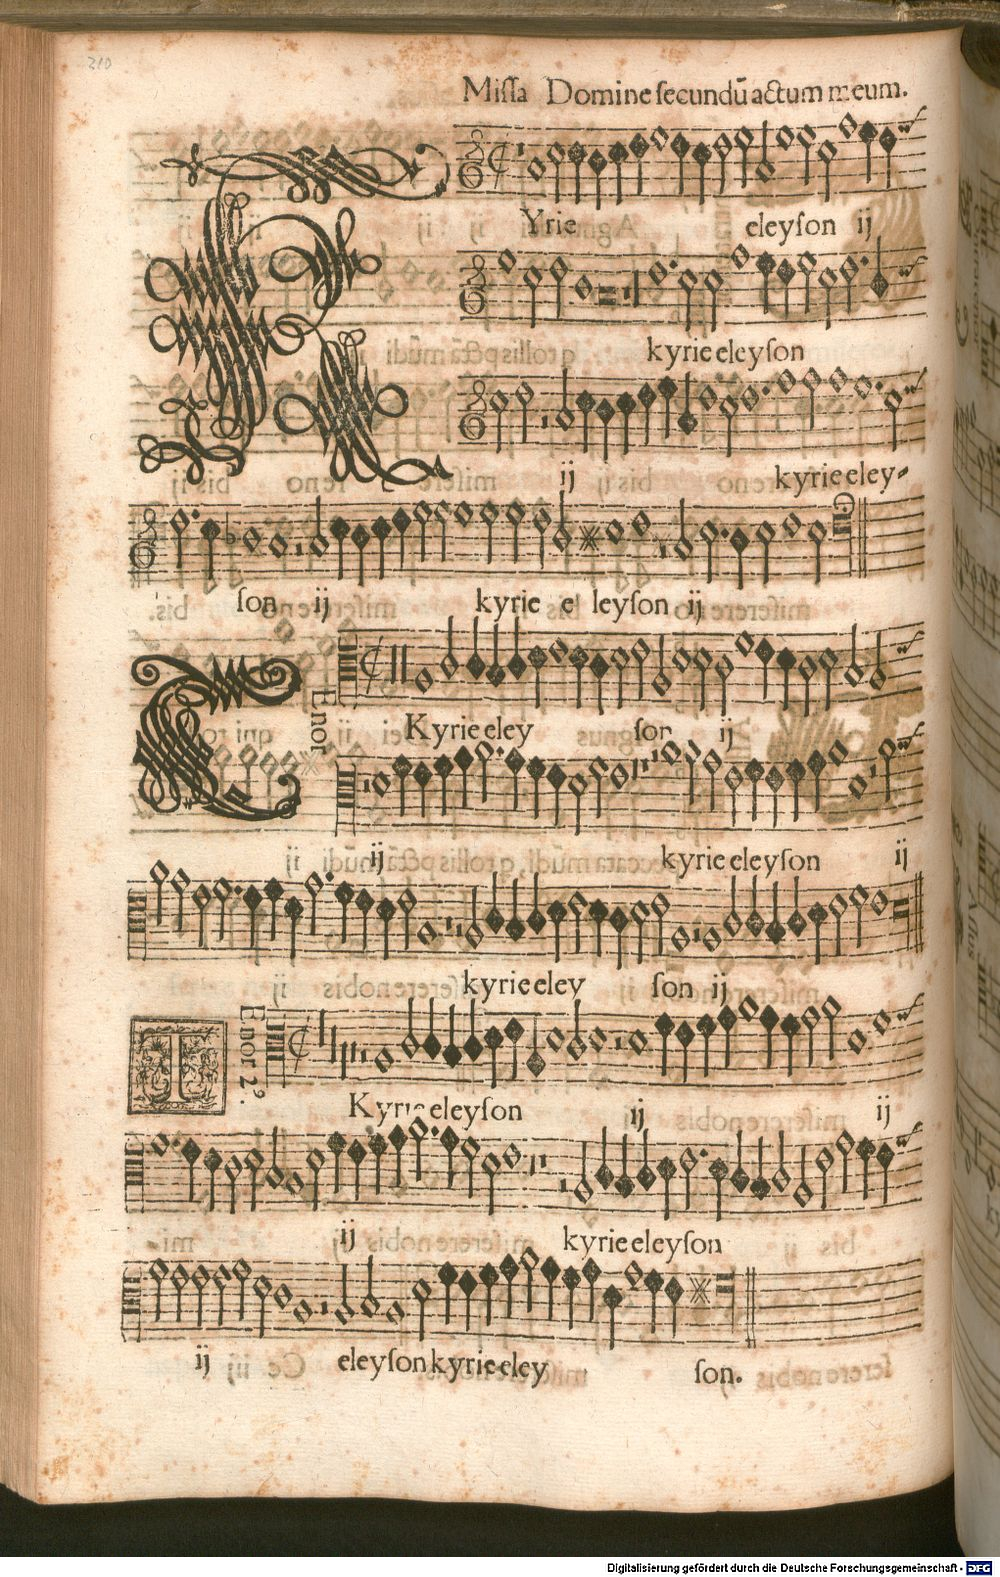 210
Missa Domine secundū actum meum.
K Yrie eleyson ij
kyrie eleyson
ij kyrie eley-
son ij kyrie e leyson ij
T Enor Kyrie eley son ij
ij kyrie eleyson ij
ij kyrie eley son ij
T Enor 2⁹. Kyrie eleyson ij ij
ij kyrie eleyson
ij eleyson kyrie eley son.
Digitalisierung gefördert durch die Deutsche Forschungsgemeinschaft - DFG